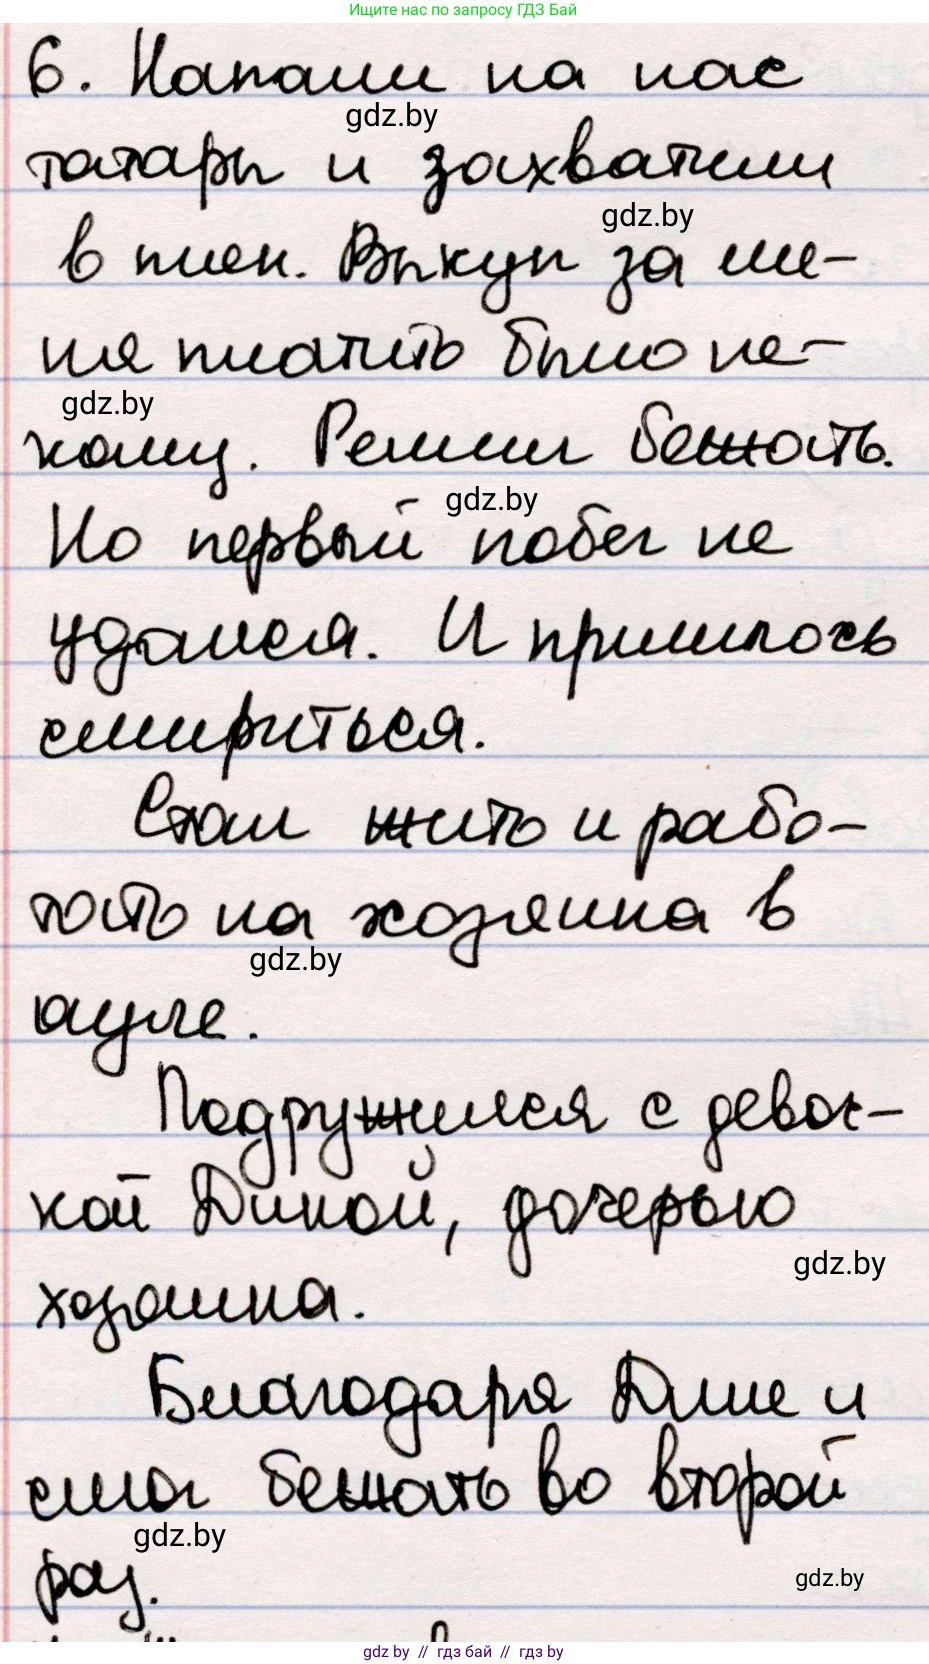 Ищите нас по запросу ГДЗ Бай
6. Напали на нас
gdz.by
татары и захватили
gdz.by
в плен. Выкуп за ме-
ня платить было не-
gdz.by
кому. Решил бежать.
gdz.by
Но первый побег не
удался. И пришлось
смириться.
Стал жить и рабо-
тать на хозяина в
gdz.by
ауле.
Подружился с девоч-
кой Диной, дочерью
gdz.by
хозяина.
Благодаря Дине и
смог бежать во второй
gdz.by
раз.
gdz.by
gdz by // гдз бай // gdz by